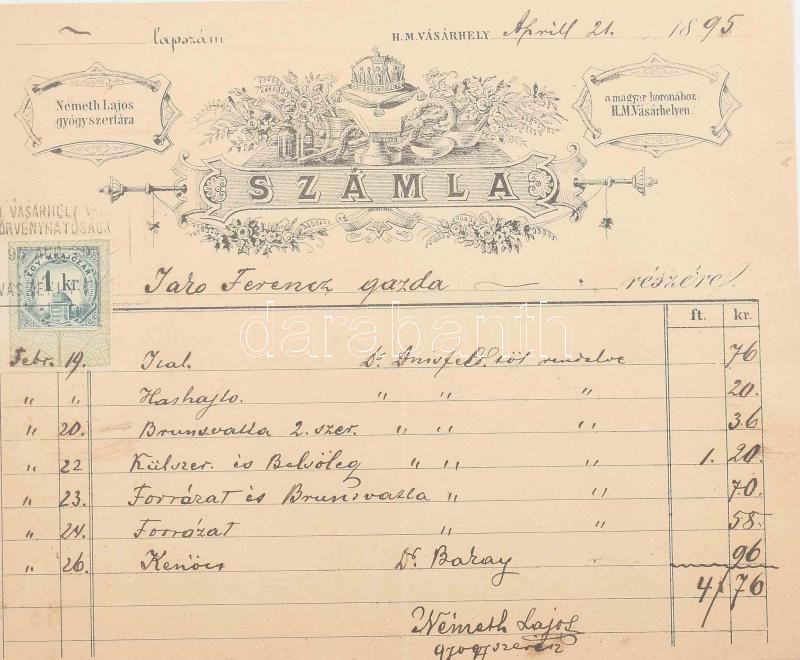 lapszám H. M. VÁSÁRHELY Aprill 21. 1895
Németh Lajos
gyógyszertára
a magyar koronához
H.M.Vásárhelyen.
SZÁMLA
VÁSÁRHELY
TÖRVÉNYHATÓSÁGA
EGY KRAJCZÁR
1 kr.
Jaro Ferencz gazda részére.
ft. kr.
Febr. 19. Ital. Dr töl rendelve 76
" " Hashajto. " " " 20.
" 20. 2. szer. " " " 36
" 22 Külszer. és " " " 1. 20.
" 23. Forrázat és " " 70.
" 24. Forrázat " " 58.
" 26. Kenöcs Dr. Baray 96
4/76
Németh Lajos
gyogyszerész
darabanth